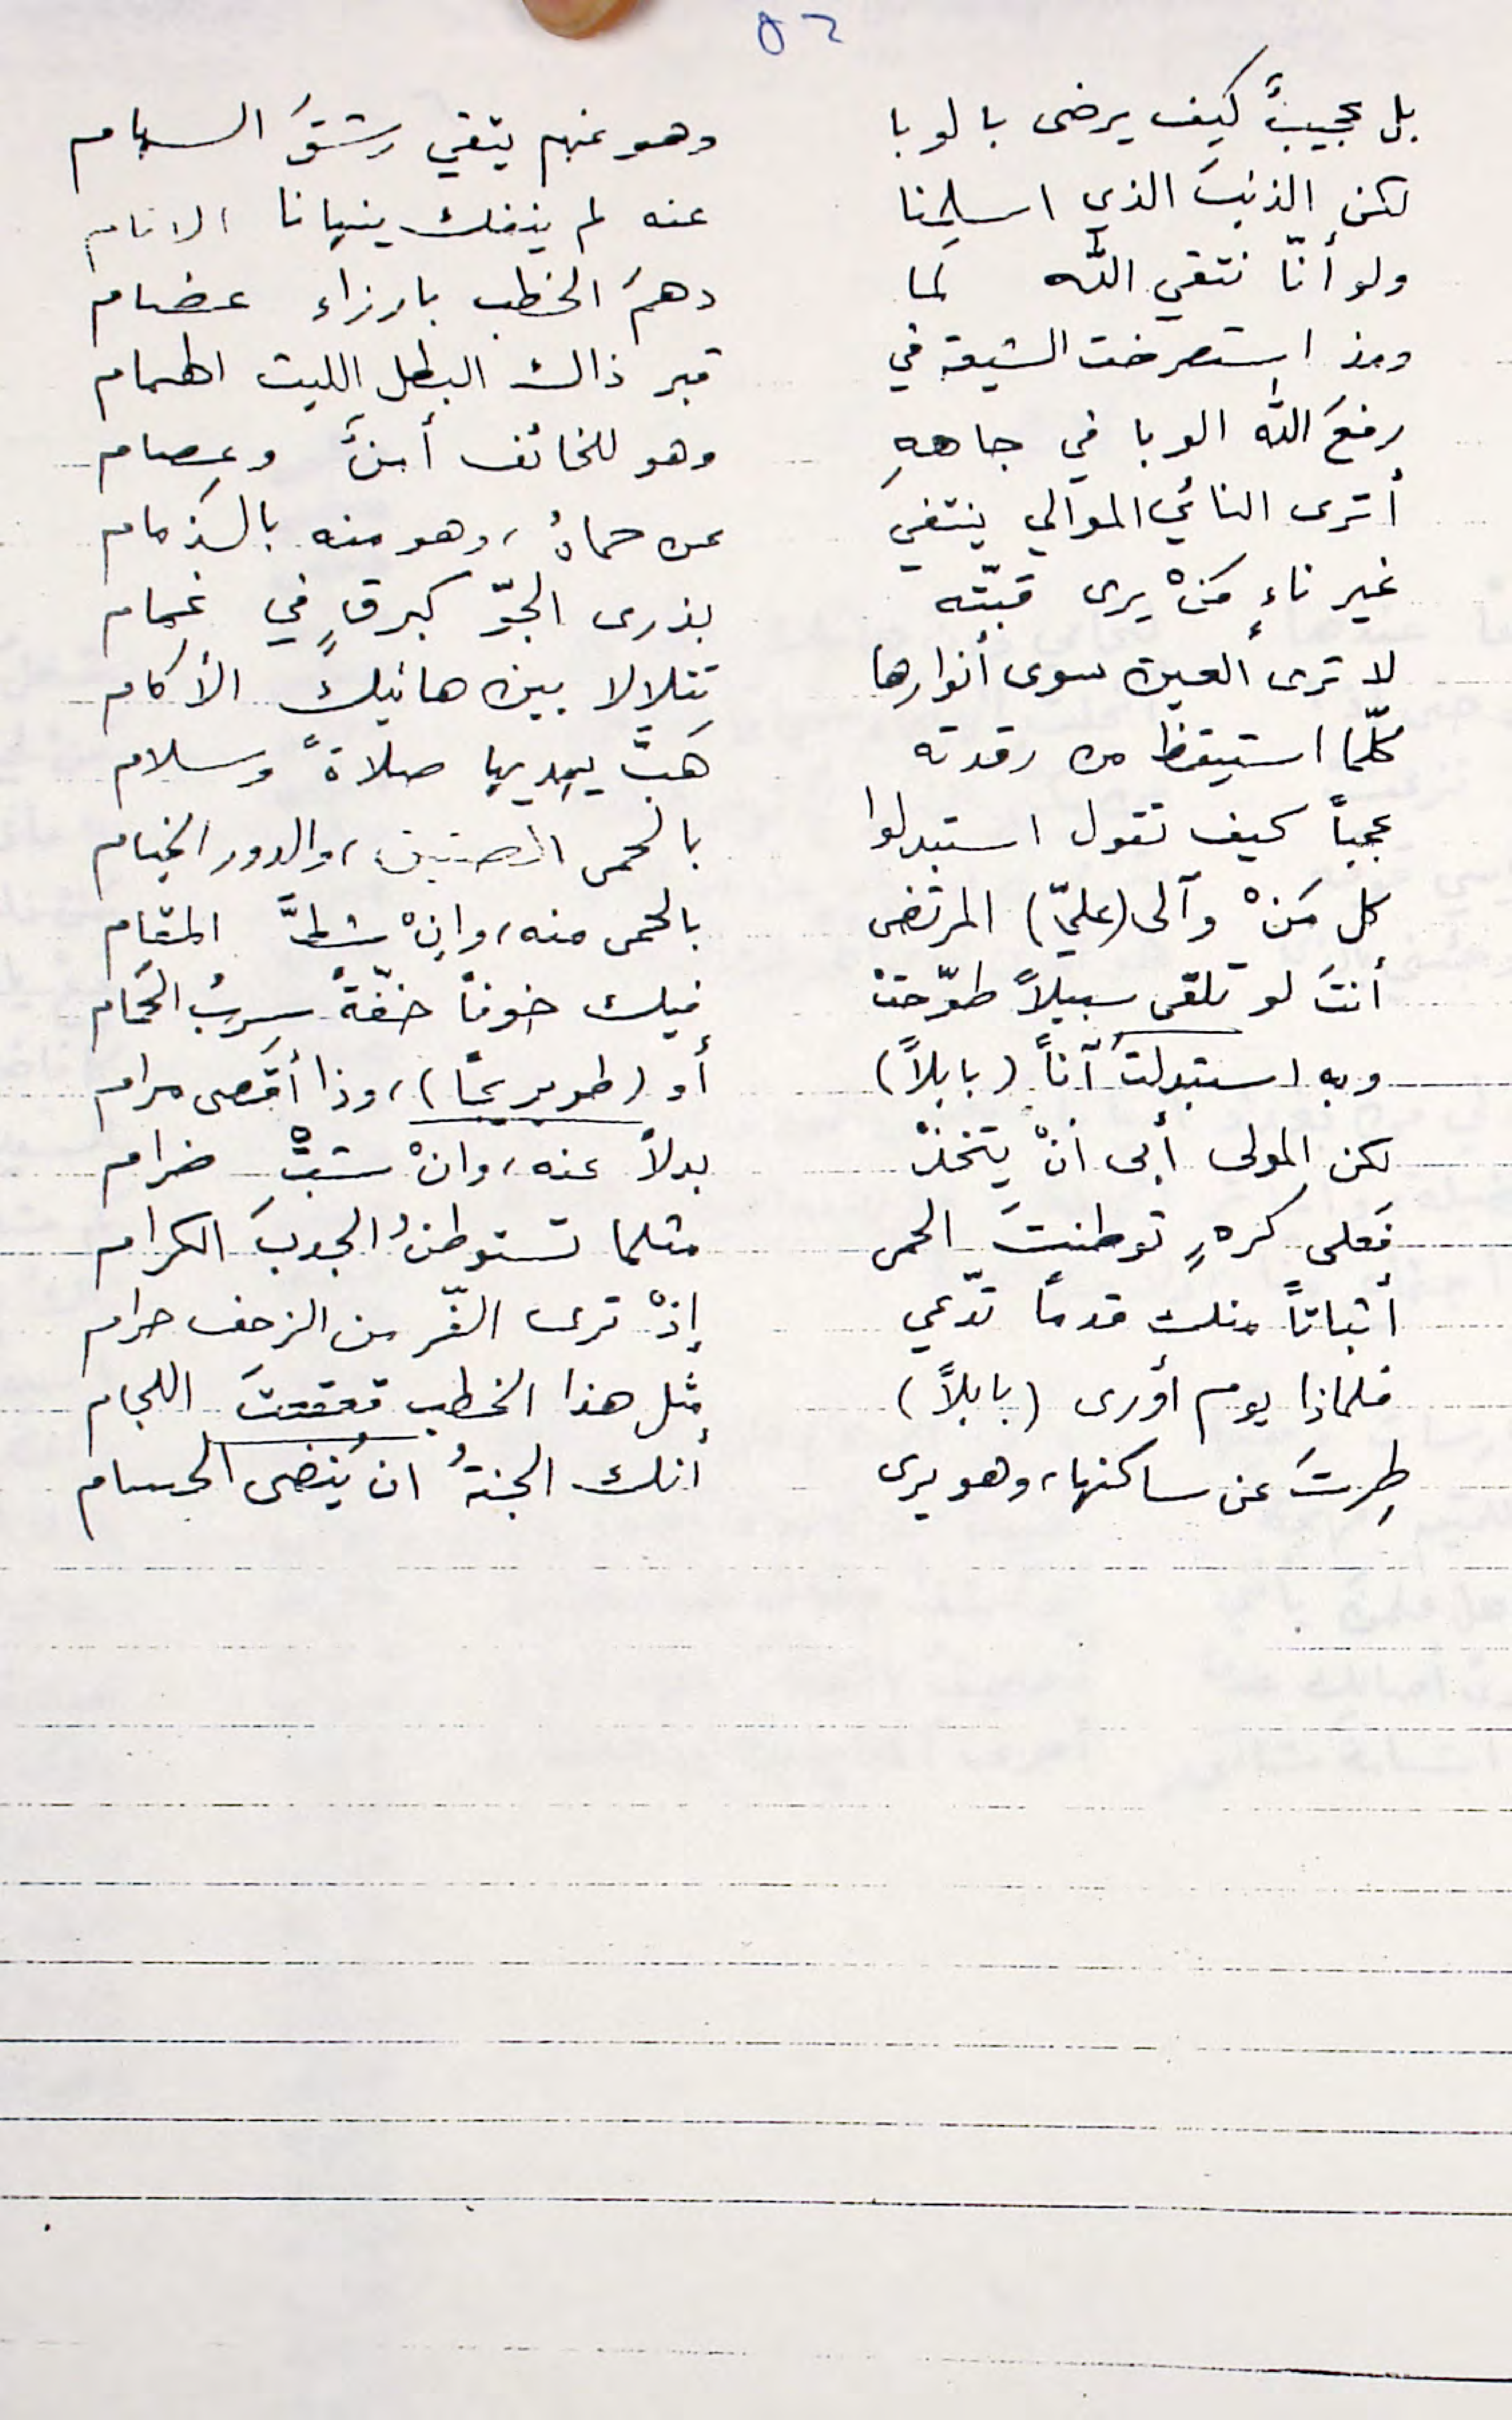 ٥٢
بل عجيبٌ كيف يرضى بالوبا وهو عنهم يتقي رشقَ السهام
لكنِ الذنبَ الذي اسلمنا عنه لم ينفك ينهانا الانام
ولو أنّا نتقي الله لما دهمَ الخطب بارزاء عضام
ومذ استصرخت الشيعة في قبر ذاك البطل الليث الهمام
رفعَ الله الوبا في جاههِ وهو للخائف أمنٌ وعِصام
أترى النائي الموالي ينتفي عن حماهُ، وهو منه بالذمام
غير ناءٍ مَنْ يرى قبّته بذرى الجوّ كبرقٍ في غمام
لا ترى العين سوى أنوارها تتلالا بين هاتيكَ الأكام
كلّما استيقظ من رقدته هَبَّ يهديها صلاةً وسلام
عجباً كيف تقول استبدلوا بالحمى، والدور الخيام
كل مَنْ وآلى (عليّ) المرتضى بالحمى منه، وإنْ شطَّ المقام
أنتَ لو تلقى سبيلاً طوّحتْ فيك خوفاً خفّةً سربُ الحَمام
وبه استبدلتَ آناً (بابلاً) أو (طويريجًا)، وذا أقصى مرام
لكن المولى أبى أنْ يتخذْ بدلاً عنه، وانْ شبّتْ ضرام
فَعلى كرهٍ توطنتَ الحمى مثلما تستوطنُ الجدبَ الكرام
أثباتاً منك قدماً تدّعي إذْ ترى الفّر من الزحف حرام
فلماذا يوم أورى (بابلاً) مثل هذا الخطب قعقعتَ اللجام
طِرتَ عن ساكنها، وهو يرى أنك الجنةُ ان يُنضى الحسام